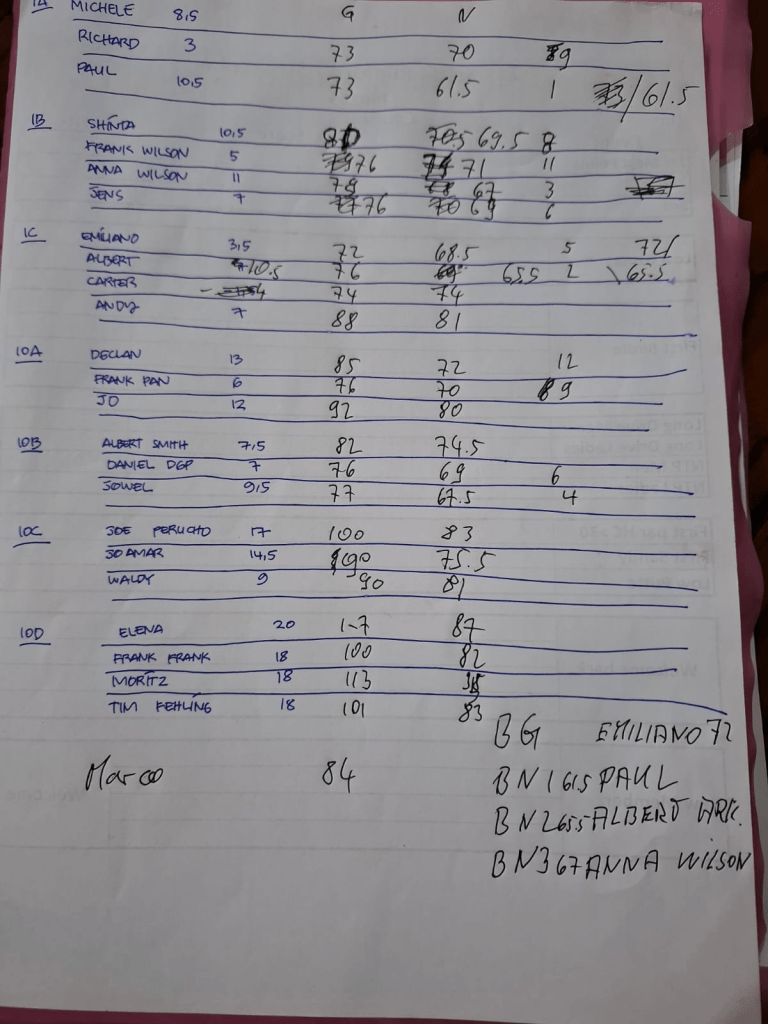 1A MICHELE 8,5 G N
RICHARD 3 73 70 9
PAUL 10,5 73 61.5 1 /61.5
1B SHINTA 10,5 70.5 69.5 8
FRANK WILSON 5 76 71 11
ANNA WILSON 11 78 67 3
JENS 7 77 76 70 69 6
1C EMILIANO 3,5 72 68.5 5 72/
ALBERT 10.5 76 65.5 2 \65.5
CARTER 74 74
ANDY 7 88 81
10A DECLAN 13 85 72 12
FRANK PAN 6 76 70 9
JO 12 92 80
10B ALBERT SMITH 7,5 82 74.5
DANIEL DGP 7 76 69 6
JOWEL 9,5 77 67.5 4
10C JOE PERUCHO 17 100 83
JOAMAR 14,5 90 75.5
WALDY 9 90 81
10D ELENA 20 87
FRANK FRANK 18 100 82
MORITZ 18 113
TIM FEHLING 18 101 83
BG EMILIANO 72
Marco 84
BN1 61.5 PAUL
BN2 65.5 ALBERT
BN3 67 ANNA WILSON